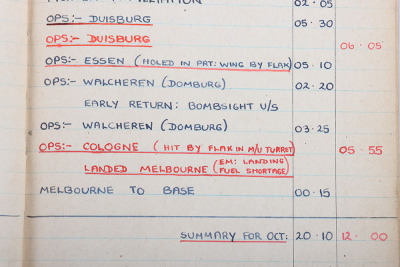 02·05
OPS:- DUISBURG 05·30
OPS:- DUISBURG 06·05
OPS:- ESSEN (HOLED IN PRT: WING BY FLAK) 05·10
OPS:- WALCHEREN (DOMBURG) 02·20
EARLY RETURN: BOMBSIGHT U/S
OPS:- WALCHEREN (DOMBURG) 03·25
OPS:- COLOGNE (HIT BY FLAK IN M/U TURRET) 05·55
LANDED MELBOURNE (EM: LANDING
FUEL SHORTAGE)
MELBOURNE TO BASE 00·15
SUMMARY FOR OCT: 20·10 12·00